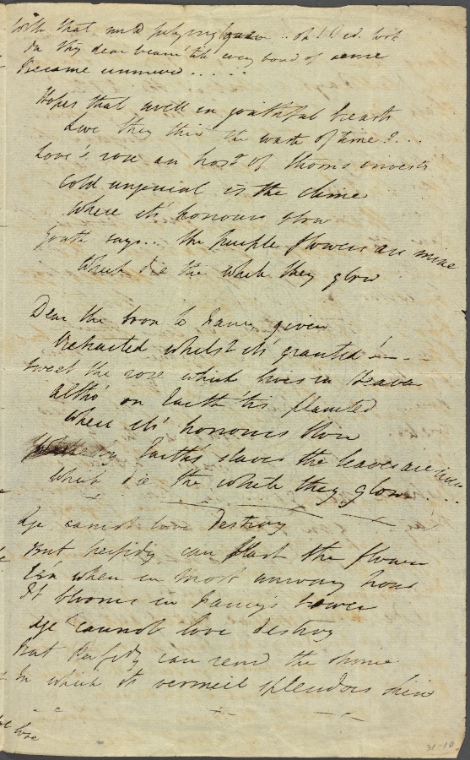 With that mild pitying gaze .. oh I look
On thy dear beam 'till every bond of sense
Became unnerved .....
Hopes that swell in youthful breasts
Live they this the waste of time? ...
Love's rose an host of thorns invests
Cold ungenial is the clime
Where its' honours blow
Youth says .. the purple flowers are mine
Which die the while they glow
Dear the boon to Fancy given
Retracted whilst its' granted —
Sweet the rose which lives in Heaven
Altho' on Earth 'tis planted
Where its' honours blow
Earths slaves the leaves are riven
Which die the while they glow
Age cannot love destroy
But perfidy can blast the flower
E'en when in most unwary hour
It blooms in Fancys bower
Age cannot love destroy
But Perfidy can rend the shrine
In which its vermeil splendors shine